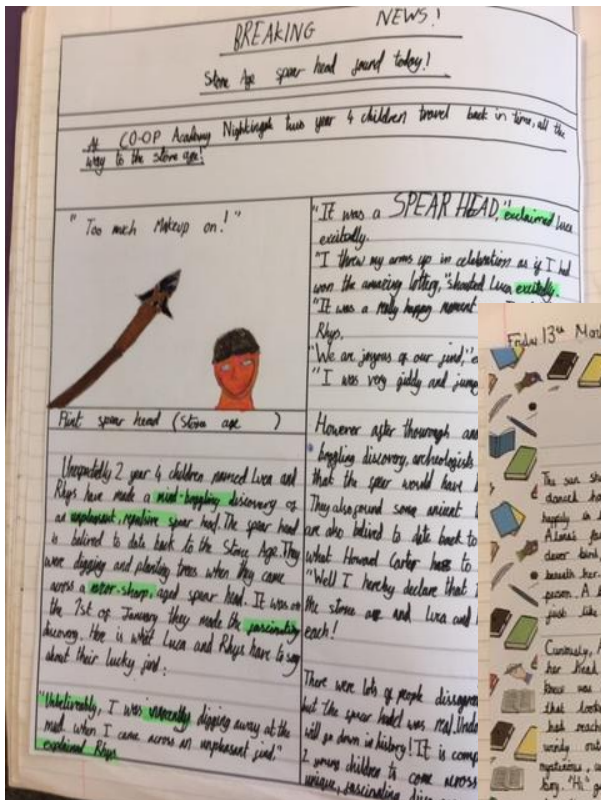 BREAKING NEWS!
Stone Age spear head found today!
At CO-OP Academy Nightingale two year 4 children travel back in time, all the
way to the stone age!
"Too much Makeup on!"
Flint spear head (Stone age )
Unexpectedly 2 year 4 children named Luca and
Rhys have made a mind-boggling discovery of
an unpleasant, repulsive spear head. The spear head
is belived to date back to the Stone Age. They
were digging and planting trees when they came
across a razor-sharp, aged spear head. It was on
the 1st of January they made the fascinating
discovery. Here is what Luca and Rhys have to say
about their lucky find:
"Unbeliveably, I was digging away at the
mud when I came across an unpleasant find,"
explained Rhys.
"It was a SPEAR HEAD," exclaimed Luca
excitedly.
"I threw my arms up in celebration as if I had
won the amazing lottery," shouted Luca excitedly.
"It was a really happy moment
Rhys.
"We are joyous of our find,"
"I was very giddy and
However after thourough
boggling discovery, archeologists
that the spear would have
They also found some ancient
are also belived to date back to
what Howard Carter has to
"Well I hereby declare that
the stone age and Luca and
each!
There were lots of people
but the spear head was real.
will go down in history! It is
2 young children to come across
unique, fascinating
Friday 13th
The sun
danced
happily in
beneath her.
person. A
just like
Curiously,
her head
knew was
that
had
windy
mysterious,
"Hi"